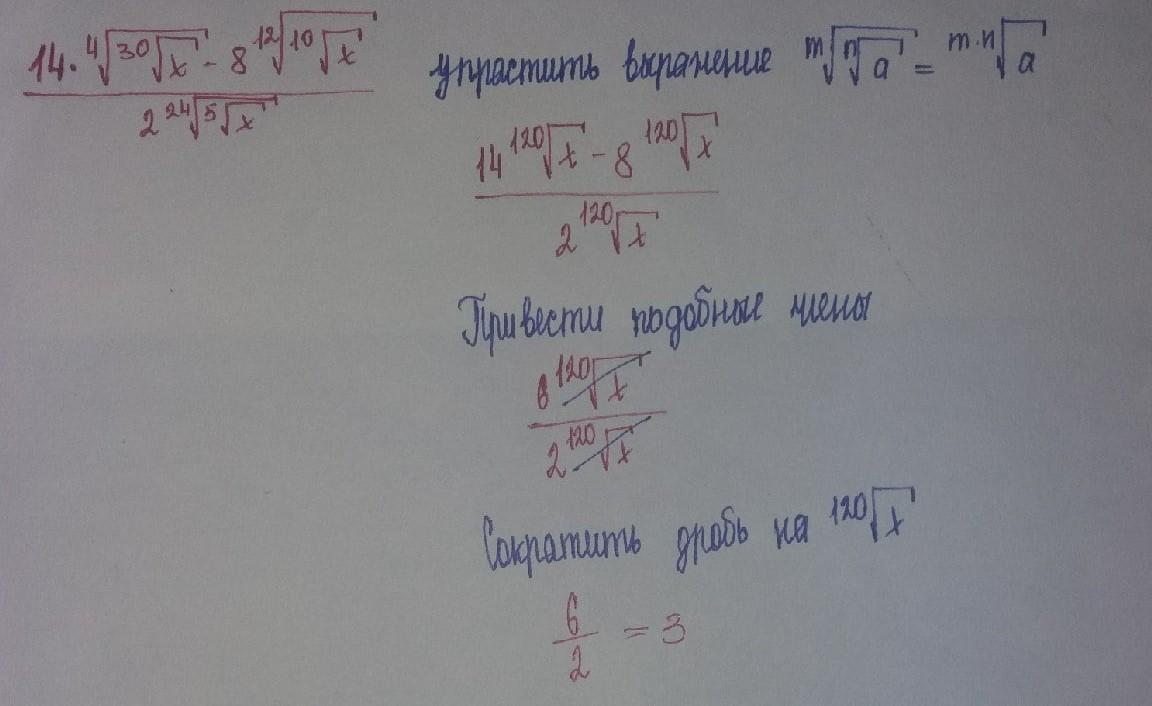 14·⁴√³⁰√x - 8 ¹²√¹⁰√x
2 ²⁴√⁵√x
упрастить выражение ᵐ√ⁿ√a = ᵐ·ⁿ√a
14 ¹²⁰√x - 8 ¹²⁰√x
2 ¹²⁰√x
Привести подобные члены
6 ¹²⁰√x
2 ¹²⁰√x
Сократить дробь на ¹²⁰√x
6
2
= 3